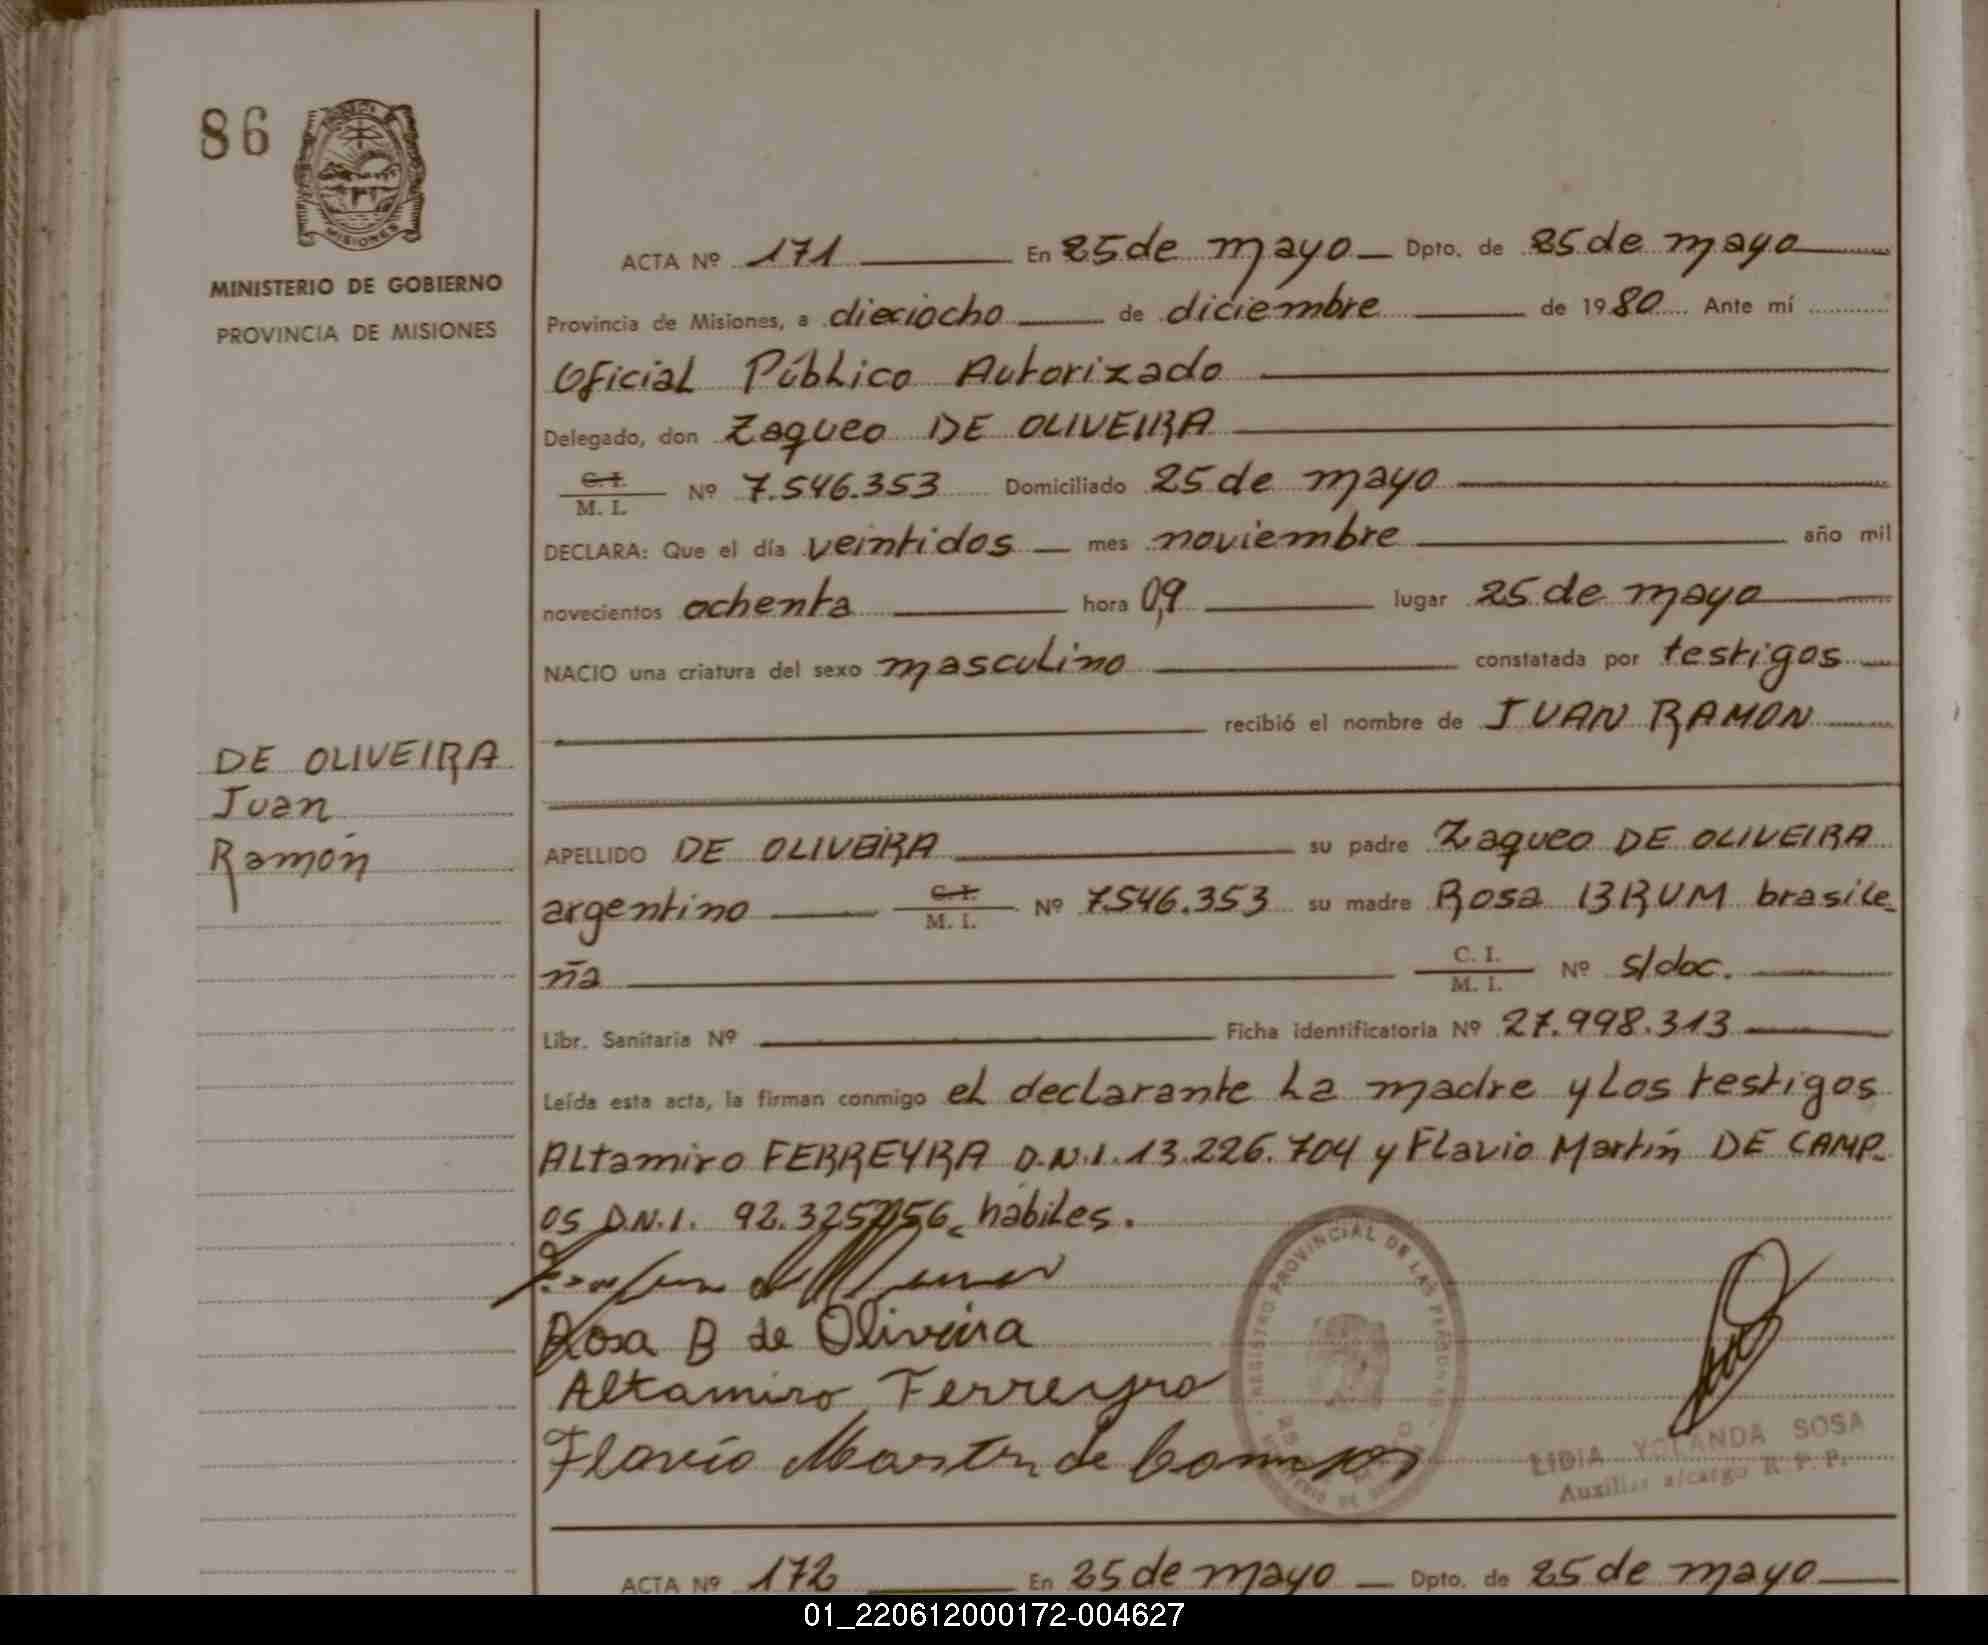 86
MISIONES
MINISTERIO DE GOBIERNO
PROVINCIA DE MISIONES
ACTA Nº 171 En 25 de mayo Dpto. de 25 de mayo
Provincia de Misiones, a dieciocho de diciembre de 1980 Ante mí
Oficial Público Autorizado
Delegado, don Zaqueo DE OLIVEIRA
C.I.
M. I. Nº 7.546.353 Domiciliado 25 de mayo
DECLARA: Que el día veintidos mes noviembre año mil
novecientos ochenta hora 09 lugar 25 de mayo
NACIO una criatura del sexo masculino constatada por testigos
recibió el nombre de JUAN RAMON
DE OLIVEIRA
Juan
Ramón
APELLIDO DE OLIVEIRA su padre Zaqueo DE OLIVEIRA
argentino C.I. M. I. Nº 7.546.353 su madre Rosa BRUM brasile-
ña C. I. M. I. Nº s/doc.
Libr. Sanitaria Nº Ficha identificatoria Nº 27.998.313
Leída esta acta, la firman conmigo el declarante La madre y Los testigos
Altamiro FERREYRA D.N.I. 13.226.704 y Flavio Martín DE CAMP-
OS D.N.I. 92.325.056 hábiles.
Rosa B de Oliveira
Altamiro Ferreyra
Flavio Martin de Campos
REGISTRO PROVINCIAL DE LAS PERSONAS
LIDIA YOLANDA SOSA
Auxiliar a/cargo R. P. P.
ACTA Nº 172 En 25 de mayo Dpto. de 25 de mayo
01_220612000172-004627